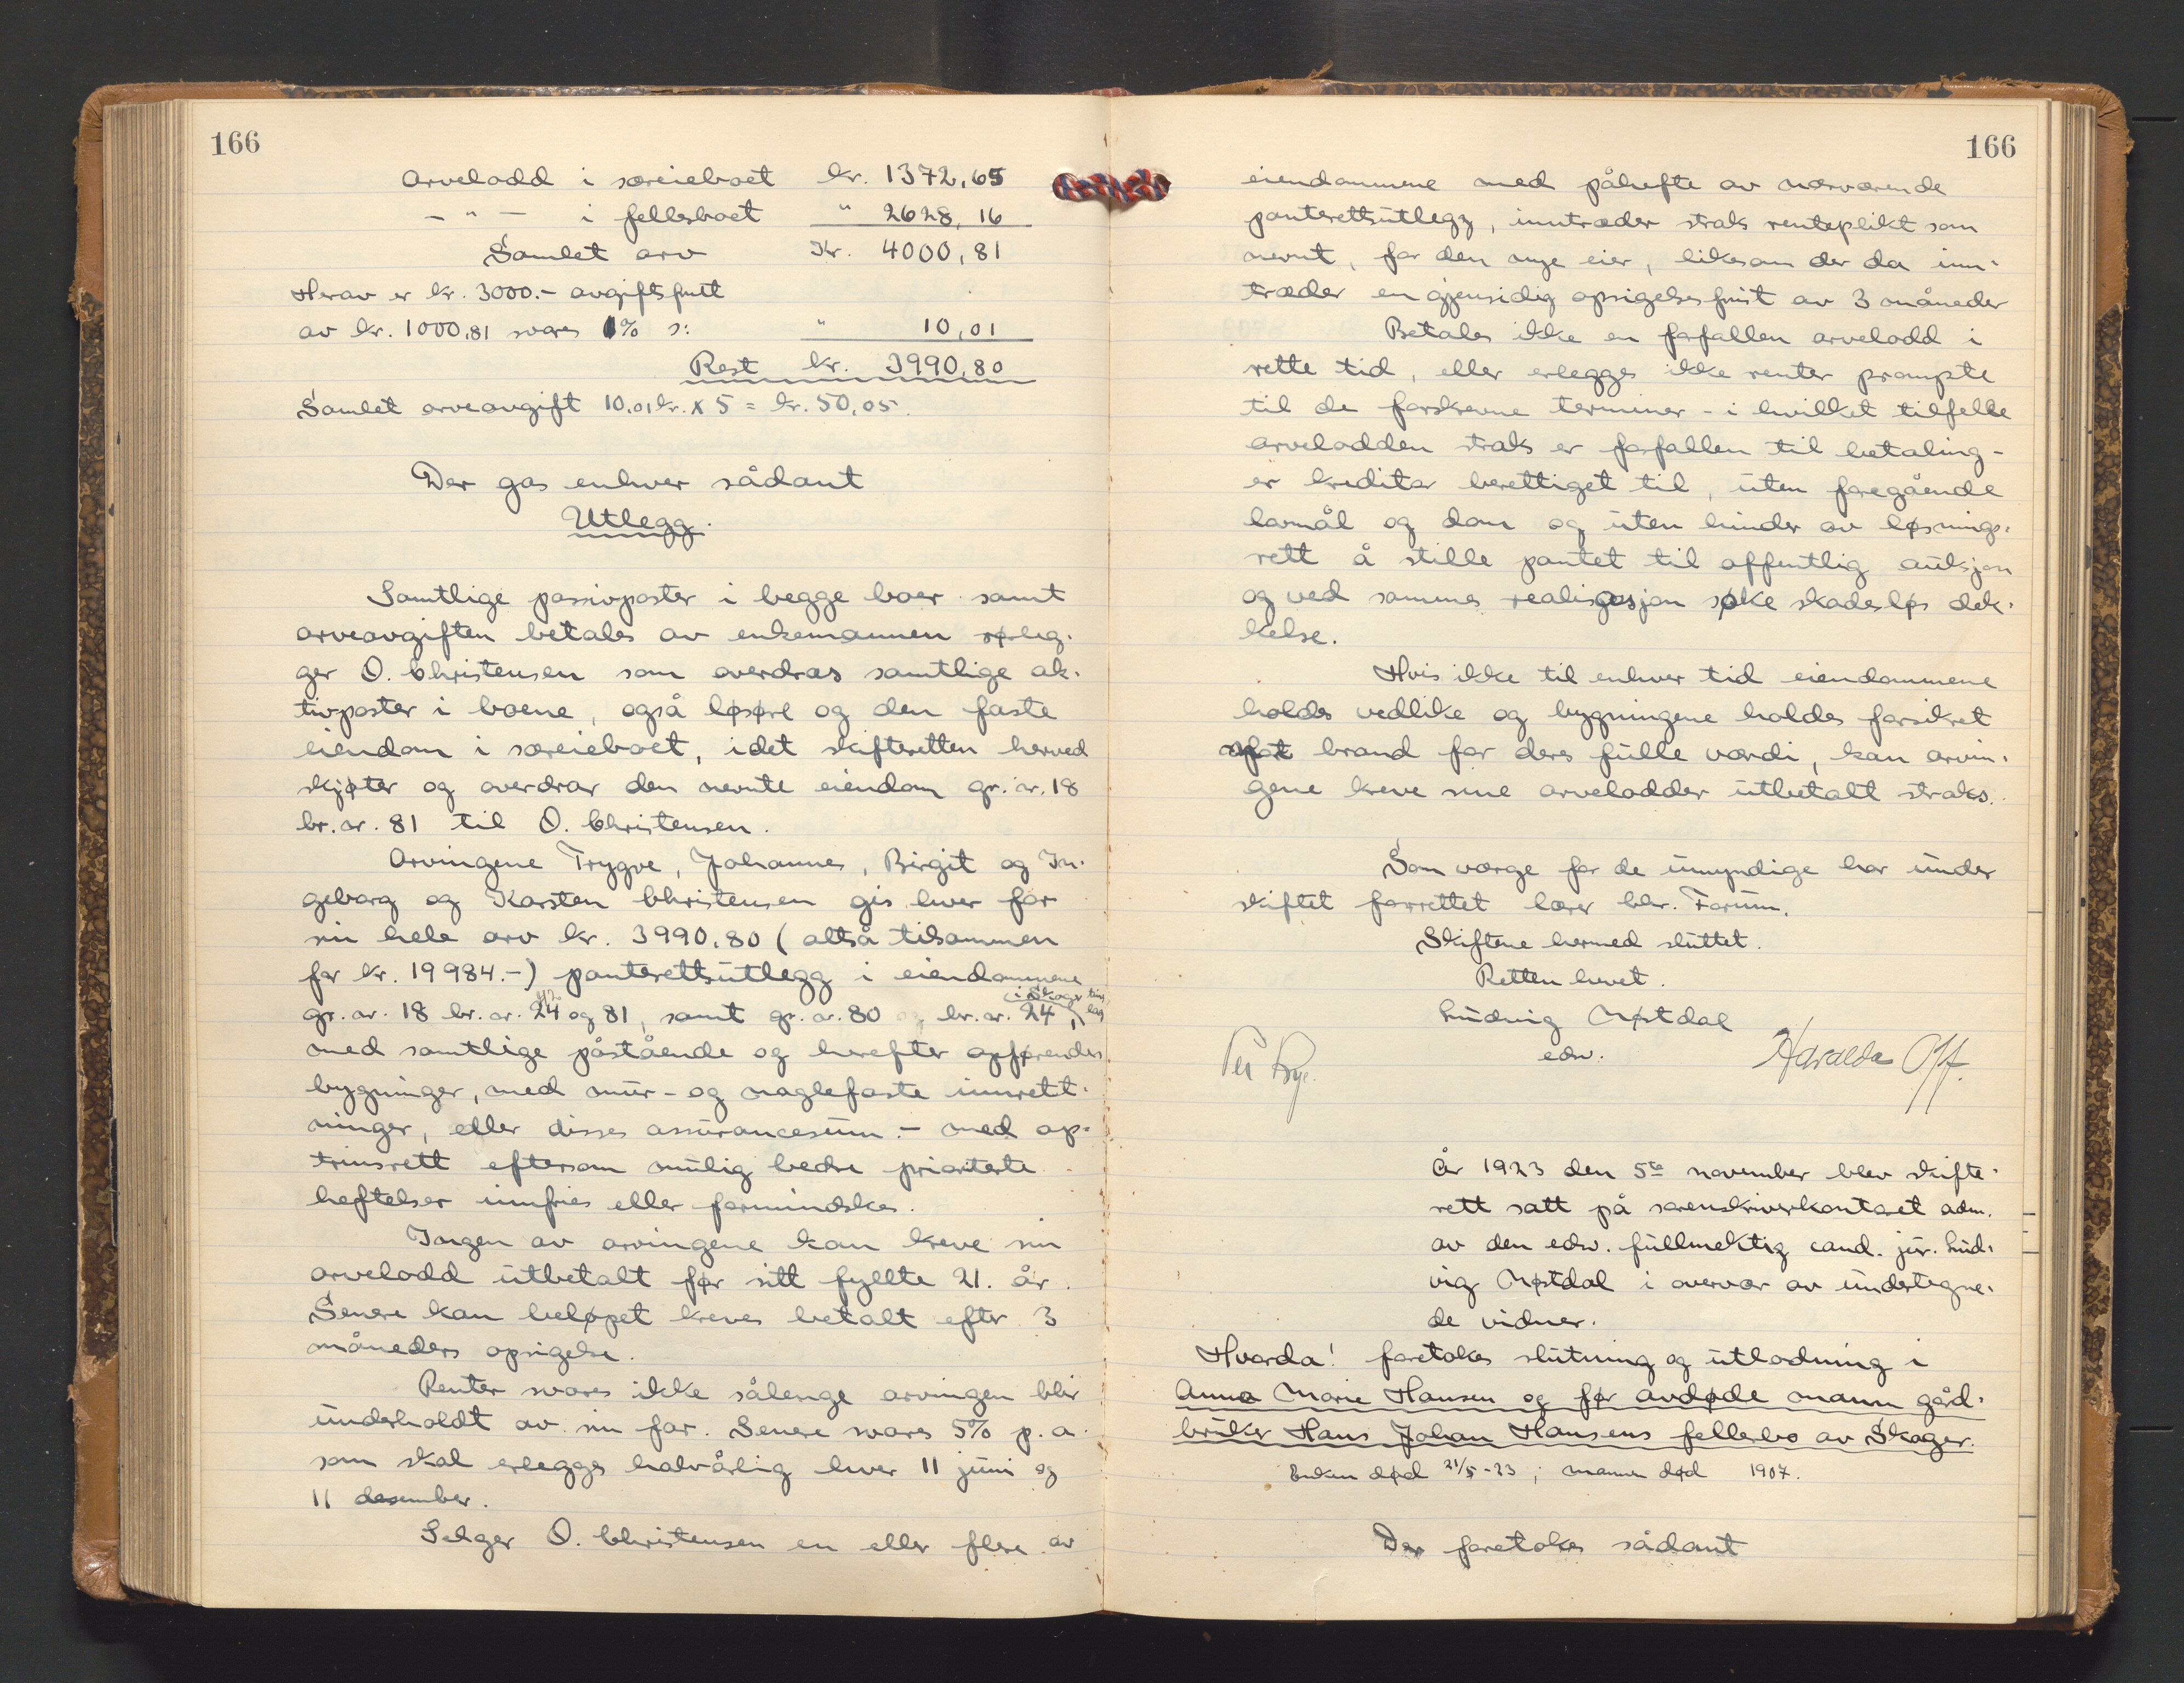 166
Arvelodd i særeieboet kr. 1372,65
– " – i fellesboet " 2628,16
Samlet arv Kr. 4000,81
Herav er kr. 3000.- avgiftsfritt
av kr. 1000,81 svares 1% ɔ: " 10,01
Rest kr. 3990,80
Samlet arveavgift 10,01 kr. x 5 = kr. 50,05.
Der gas enhver sådant
Utlegg.
Samtlige passivposter i begge boer samt
arveavgiften betales av enkemannen rørleg-
ger O. Christensen som overdras samtlige ak-
tivposter i boene, også løsøre og den faste
eiendom i særeieboet, idet skifteretten herved
skjøter og overdrar den nevnte eiendom gr. nr. 18
br. nr. 81 til O. Christensen.
Arvingene Trygve, Johannes, Birgit og In-
geborg og Karsten Christensen gis hver for
sin hele arv kr. 3990.80 (altså tilsammen
for kr. 19984.-) panterettsutlegg i eiendommene
i Skoger ting
lag
gr. nr. 18 br. nr. 24 og 81, samt gr. nr. 80 br. nr. 24,
med samtlige påstående og herefter opførendes
bygninger, med mur- og naglefaste innrett-
ninger, eller disses assurancesum. – med op-
trinsrett eftersom mulig bedre prioriterte
heftelser innfries eller formindskes.
Ingen av arvingene kan kreve sin
arvelodd utbetalt før sitt fyllte 21. år.
Senere kan beløpet kreves betalt efter 3
måneders opsigelse.
Renter svares ikke sålenge arvingen blir
underholdt av sin far. Senere svares 5% p. a.
som skal erlegges halvårlig hver 11 juni og
11 desember.
Selger O. Christensen en eller flere av
166
eiendommene med påhefte av nærværende
panterettsutlegg, inntræder straks renteplikt som
nevnt, for den nye eier, likesom der da inn-
træder en gjensidig opsigelsesfrist av 3 måneder
Betales ikke en forfallen arvelodd i
rette tid, eller erlegges ikke renter prompte
til de forskrevne terminer – i hvilket tilfelle
arvelodden straks er forfallen til betaling –
er kreditor berettiget til, uten foregående
lovmål og dom og uten hinder av løsnings-
rett å stille pantet til offentlig auksjon
og ved sammes realisasjon søke skadesløs dek-
kelse.
Hvis ikke til enhver tid eiendommene
holdes vedlike og bygningene holdes forsikret
mot brand for deres fulle værdi, kan arvin-
gene kreve sine arvelodder utbetalt straks.
Som værge for de umyndige har under
skiftet forrettet lærer Chr. Forum.
Skiftene hermed sluttet.
Retten hevet.
Ludvig Møstdal
edsv.
Haralda Off.
År 1923 den 5te november blev skifte-
rett satt på sorenskriverkontoret adm.
av den edsv. fullmektig cand. jur. Lud-
vig Møstdal i overvær av undertegne-
de vidner.
Hvorda! foretokes slutning og utlodning i
Anna Marie Hansen og før avdøde mann gård-
bruker Hans Johan Hansens fellesbo av Skoger.
Enken død 21/5-23; mannen død 1907.
Der foretokes sådant